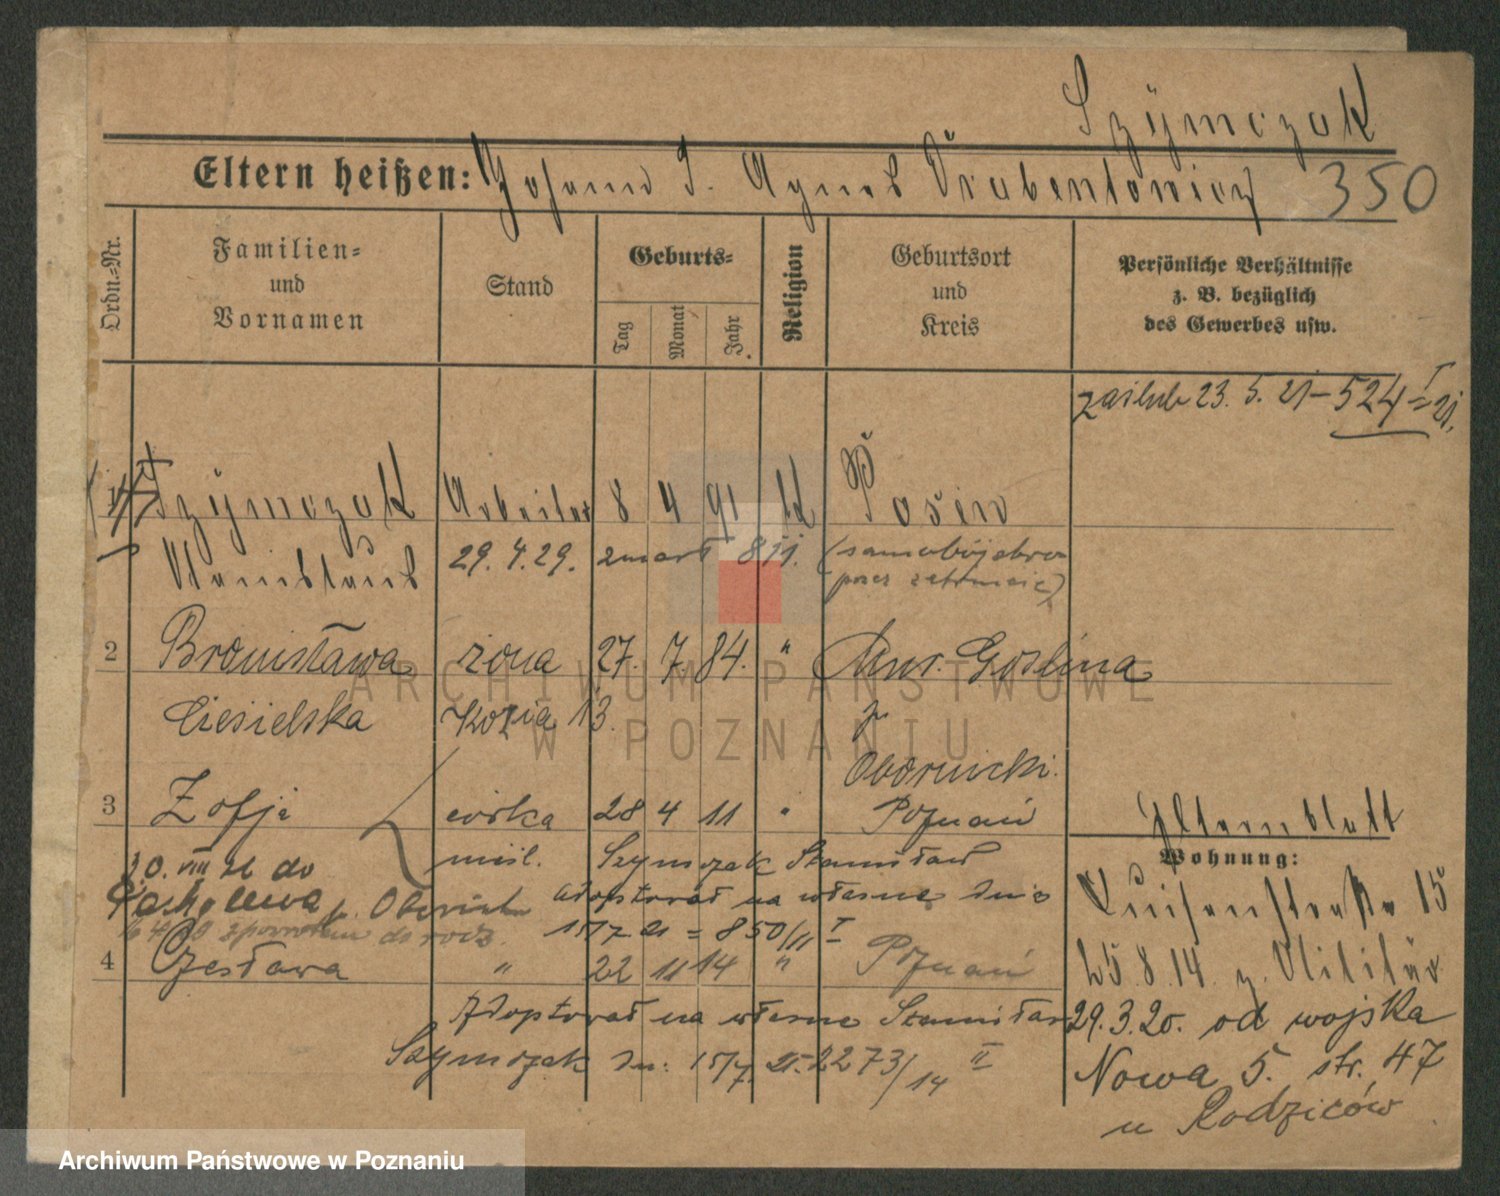 Szymczak
Eltern heißen: Johann u. Agnes Vrabentowicz 350
Ordn.=Nr.
Familien=
und
Vornamen
Stand
Geburts=
Tag
Monat
Jahr
Religion
Geburtsort
und
Kreis
Persönliche Verhältnisse
z. B. bezüglich
des Gewerbes usw.
zaślub 23. 5. 21 – 524 I/21.
1 Szymczak Arbeiter 8 4 91 K Posen
Stanislaus 29. 4. 29. zmarł (samobójstwo
przez
2 Bronisława żona 27. 7. 84. " Mur. Goślina
Ciesielska Kozia 13. p.
Obornicki.
3 Zofja córka 28 4 11 " Poznań
nieśl. Szymczak Stanisław
30. VIII 26 do
adoptował na własne dnia
p. Obornicki
15/7 21 = 850/11 I
4 Czesława " 22 11 14 " Poznań
Adoptował na własne Stanisław
Szymczak dn. 15/7. 21. 2273/14 II
Elternblatt
Wohnung:
Luisenstraße 15
25. 8. 14 z. Militär
29. 3. 20. od wojska
Nowa 5. str. 47
u Rodziców
ARCHIWUM PAŃSTWOWE
W POZNANIU
Archiwum Państwowe w Poznaniu